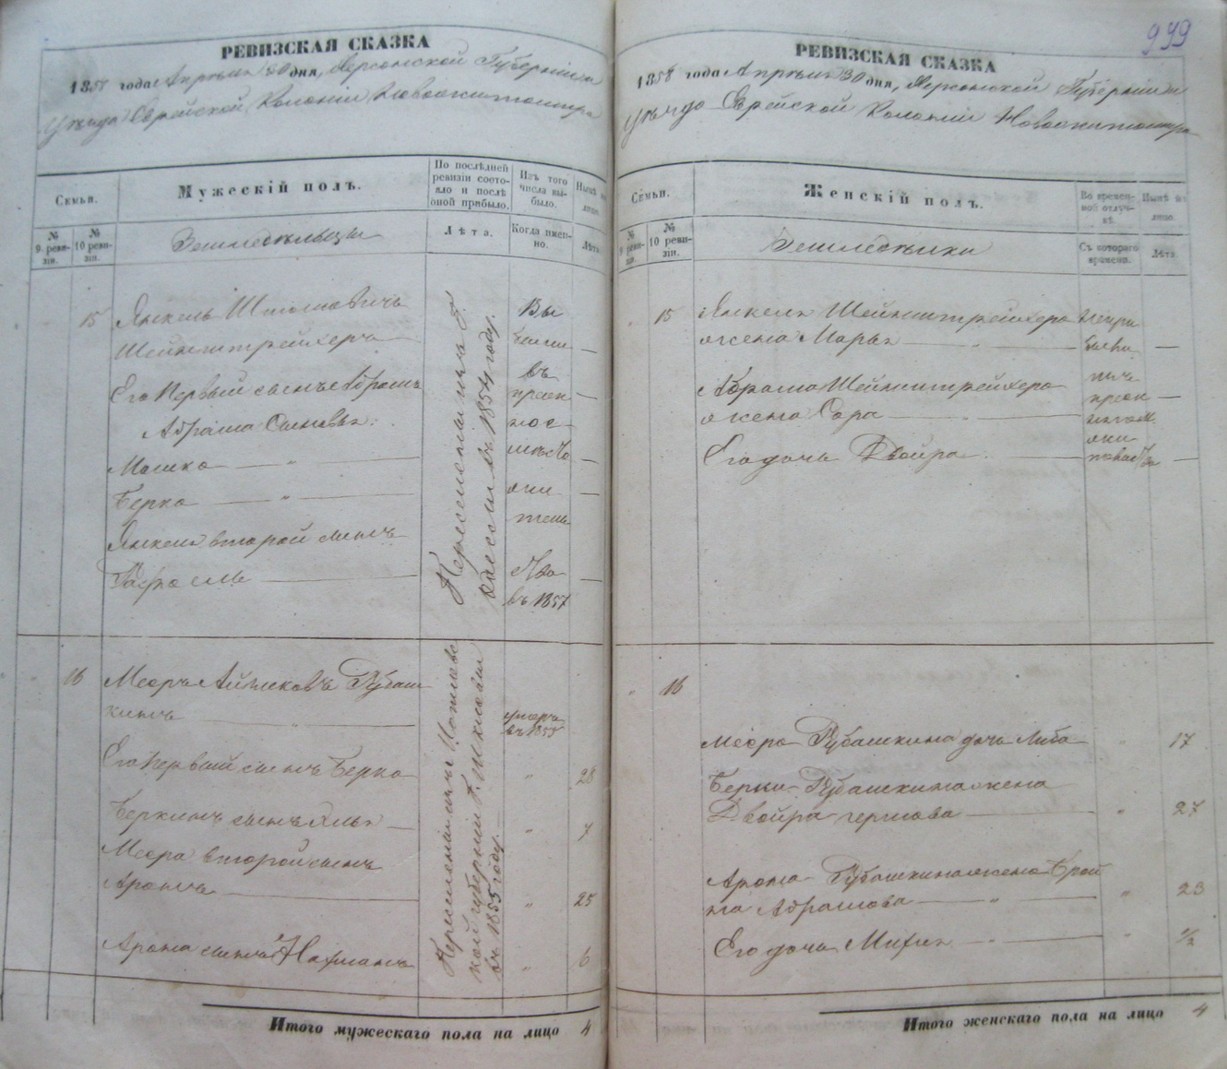 939
РЕВИЗСКАЯ СКАЗКА
1858 года Апрѣля 30 дня, Херсонской Губерніи
уѣзда Еврейской Колоніи Новожитомира
Семьи.
Мужескій полъ.
По послѣдней ревизіи состояло и послѣ оной прибыло.
Изъ того числа выбыло.
Нынѣ на лицо.
№ 9 ревизіи.
№ 10 ревизіи.
Земледѣльцы
Лѣта.
Когда именно.
Лѣта.
15 Янкель
Шейнштрейхеръ
Его первый сынъ Абрамъ
Абрама Сыновья:
Мошко — " —
Берко — " —
Янкеля второй сынъ
Переселенъ изъ Г.
Одессы въ 1854 году.
въ
въ 1857
16 Мееръ Айзиковъ Рубаш
кинъ
умеръ въ 1855
Его первый сынъ Берко " 28
Беркинъ сынъ " 7
Меера второй сынъ
Аронъ " 25
Арона сынъ Нахманъ " 6
Переселены изъ Могилевс
кой губерніи Г. Шклова
въ 1855 году.
Итого мужескаго пола на лицо 4
РЕВИЗСКАЯ СКАЗКА
1858 года Апрѣля 30 дня, Херсонской Губерніи
уѣзда Еврейской Колоніи Новожитомира
Семьи.
Женскій полъ.
Во временной отлучкѣ.
Нынѣ на лицо.
№ 9 ревизіи.
№ 10 ревизіи.
Съ котораго времени.
Лѣта
15 Янкеля Шейнштрейхера
жена Марья
Абрама Шейнштрейхера
жена Сара
Его дочь Двойра
" 16
Меера Рубашкина дочь Либа " 17
Берки Рубашкина жена
Двойра Гершова " 27
Арона Рубашкина жена Брай
на Абрамова " 23
Его дочь " 1/2
Итого женскаго пола на лицо 4